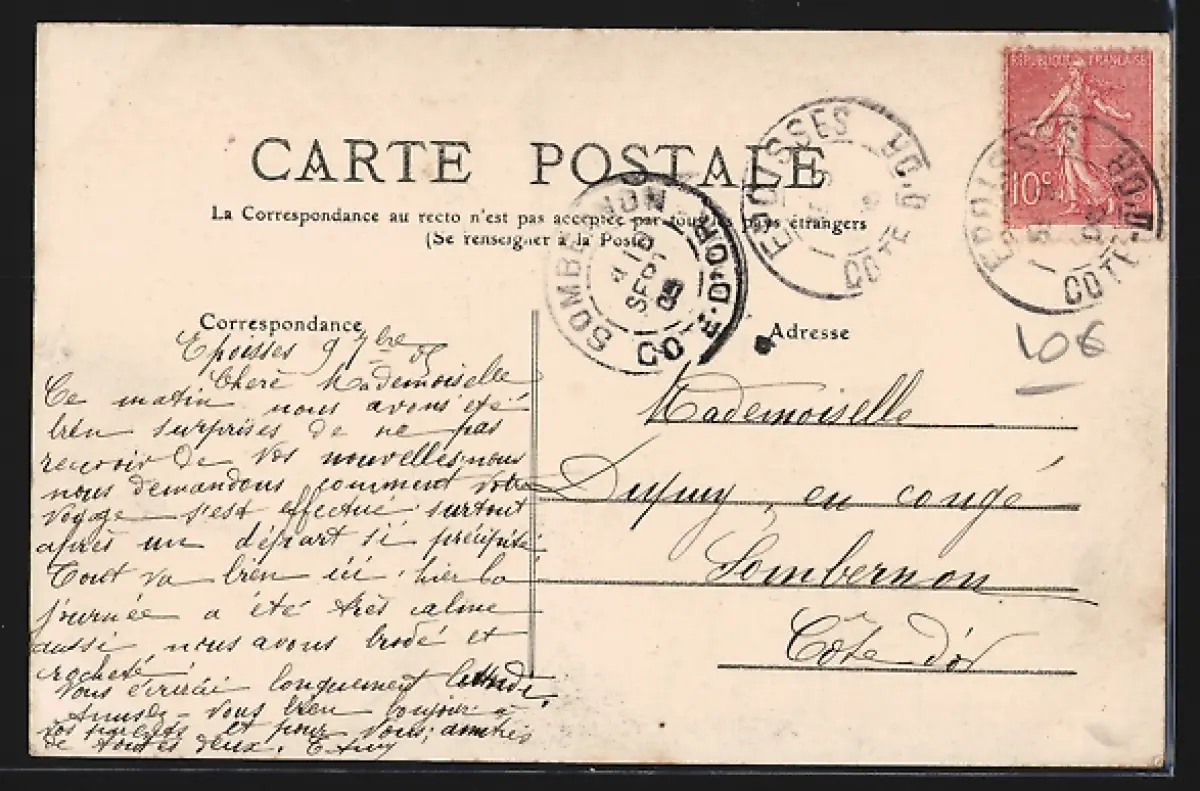 REPUBLIQUE FRANÇAISE
10c
EPOISSES COTE D'OR
EPOISSES COTE D'OR
CARTE POSTALE
La Correspondance au recto n'est pas acceptée par tous les pays étrangers
(Se renseigner à la Poste)
SOMBERNON CO E-D'OR
SEPT
05
106
Correspondance
Epoisses 9 7bre 05
Chère Mademoiselle
Ce matin nous avons été
bien surprises de ne pas
recevoir de vos nouvelles, nous
nous demandons comment votre
voyage s'est effectué surtout
après un départ si précipité
Tout va bien ici, hier la
journée a été très calme
aussi, nous avons brodé et
crocheté
Vous écrirai longuement lundi.
Amusez-vous bien bonjour à
vos parents et pour vous amitiés
de toutes deux.
Adresse
Mademoiselle
Dupuy, en congé
Sombernon
Côte d'or